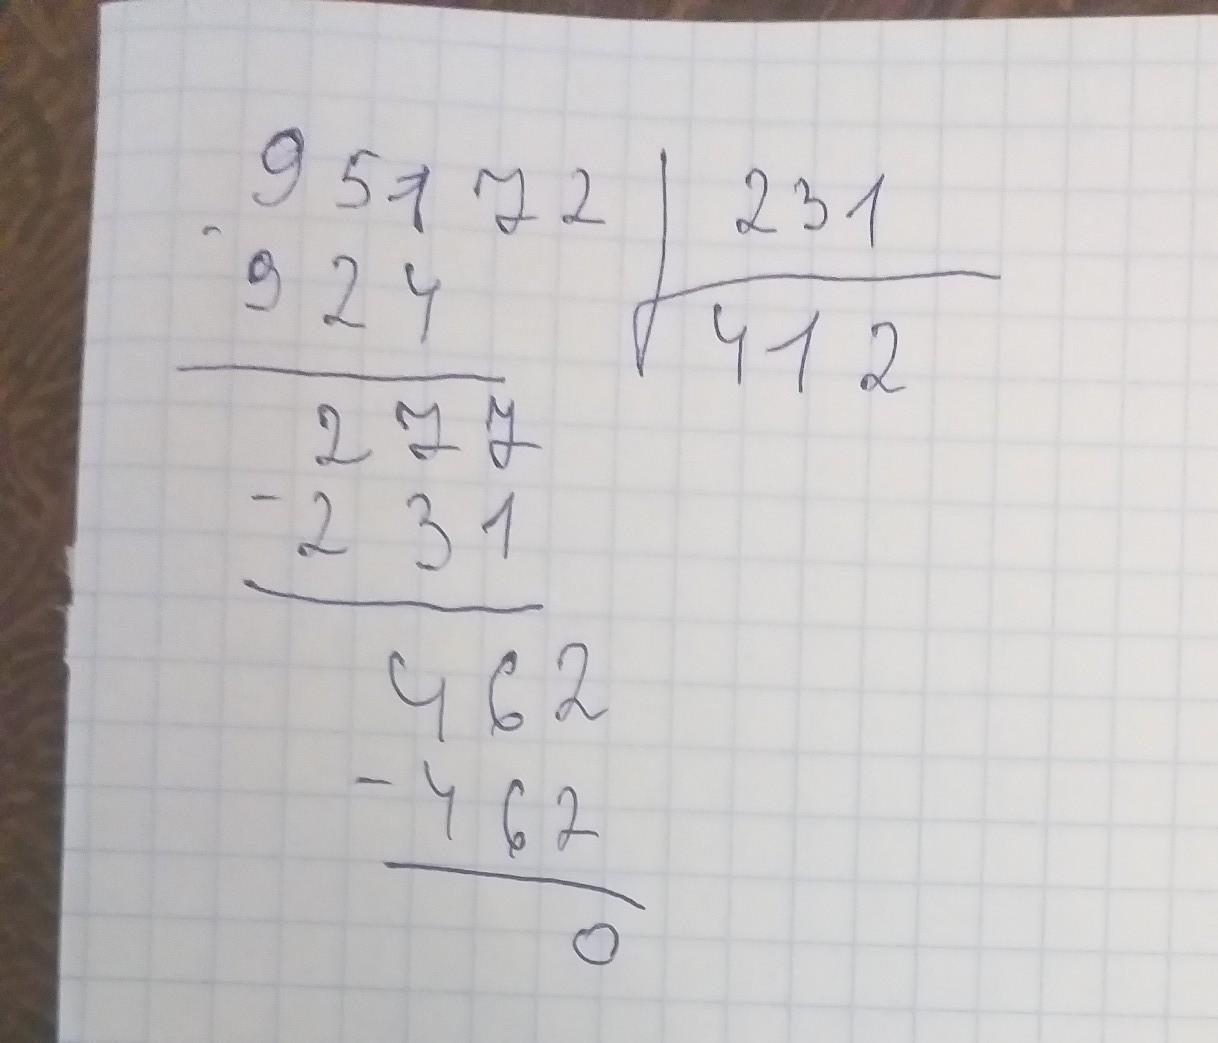 95172 231
- 924 412
277
- 231
462
- 462
0